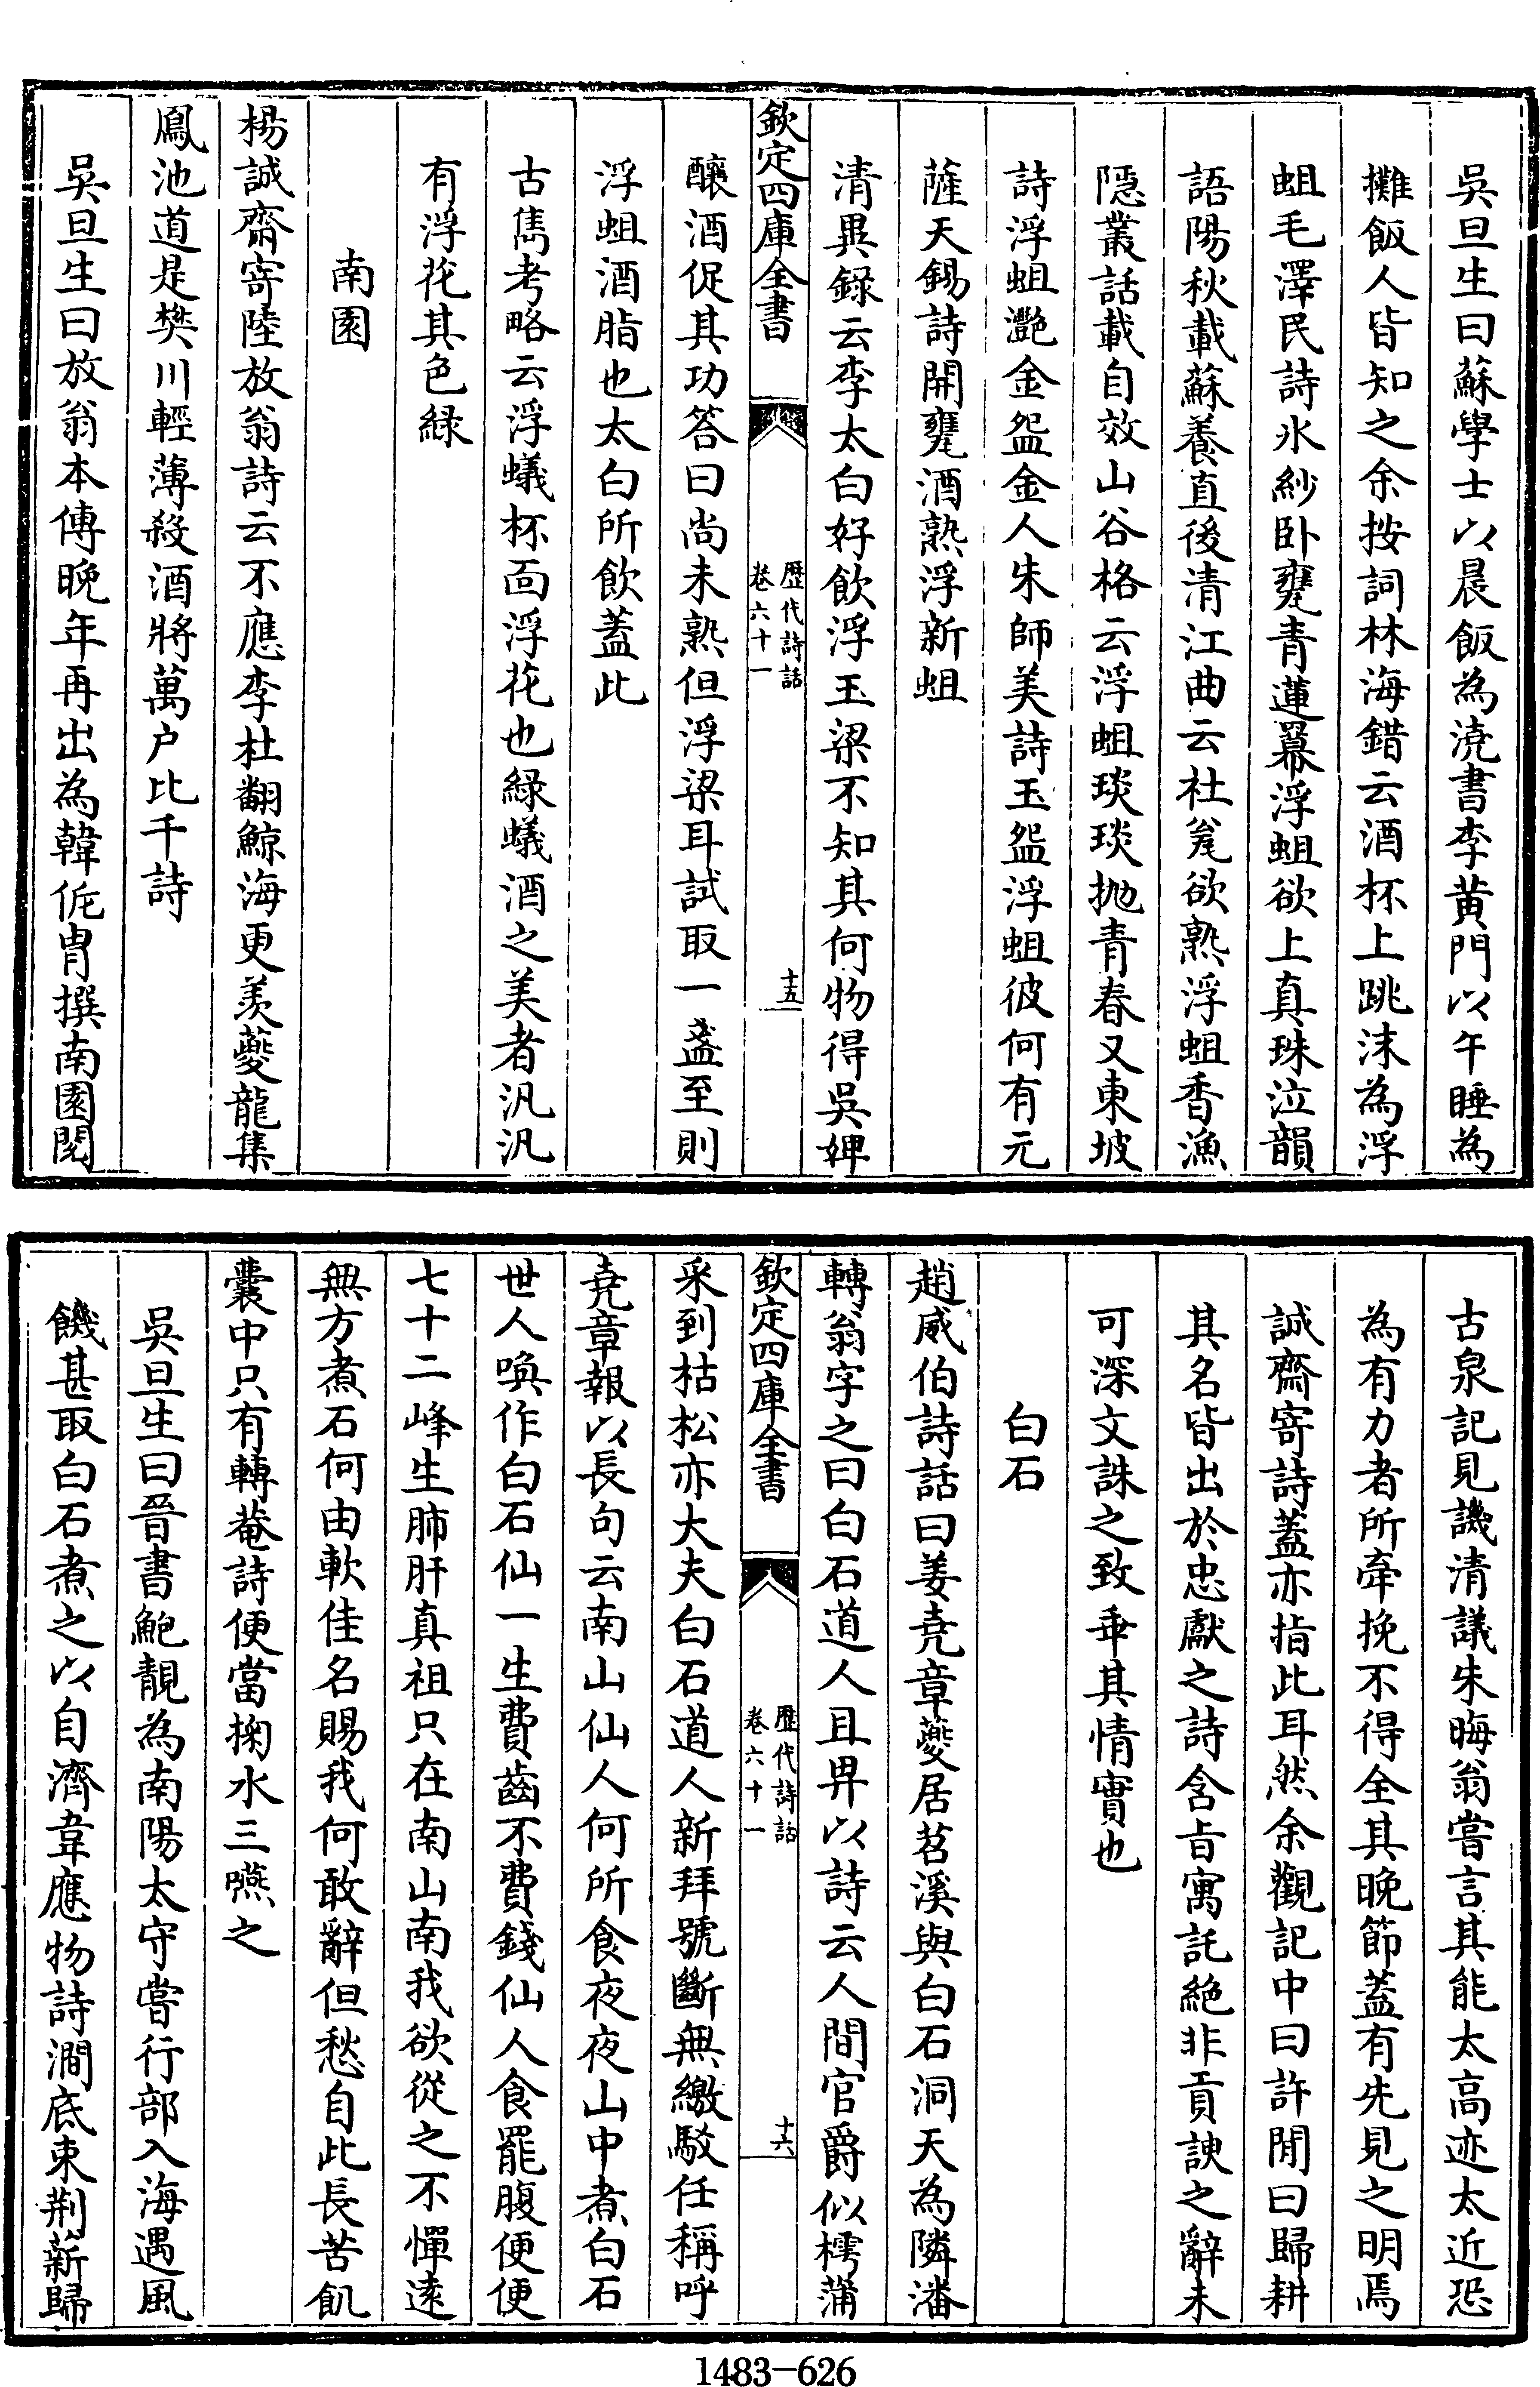 吳旦生曰蘇學士以晨飯為澆書李黄門以午睡為
攤飯人皆知之余按詞林海錯云酒杯上跳沫為浮
蛆毛澤民詩氷紗卧甕青蓮羃浮蛆欲上真珠泣韻
語陽秋載蘇養直後清江曲云社瓮欲熟浮蛆香漁
隱叢話載自效山谷格云浮蛆琰琰抛青春又東坡
詩浮蛆灧金盌金人朱師美詩玉盌浮蛆彼何有元
薩天錫詩開甕酒熟浮新蛆
清異録云李太白好飲浮玉梁不知其何物得吳婢
欽定四庫全書
歴代詩話
卷六十一
十五
釀酒促其功答曰尚未熟但浮梁耳試取一盞至則
浮蛆酒脂也太白所飲蓋此
古雋考略云浮蟻杯面浮花也緑蟻酒之美者汎汎
有浮花其色緑
南園
楊誠齋寄陸放翁詩云不應李杜翻鯨海更羨夔龍集
鳳池道是樊川輕薄殺酒將萬户比千詩
吳旦生曰放翁本傳晚年再出為韓侂胄撰南園閱
古泉記見譏清議朱晦翁嘗言其能太高迹太近恐
為有力者所牽挽不得全其晚節蓋有先見之明焉
誠齋寄詩蓋亦指此耳然余觀記中曰許閒曰歸耕
其名皆出於忠獻之詩含㫖寓託絶非貢諛之辭未
可深文誅之致乖其情實也
白石
趙威伯詩話曰姜堯章夔居苕溪與白石洞天為隣潘
轉翁字之曰白石道人且畀以詩云人間官爵似樗蒲
欽定四庫全書
歴代詩話
卷六十一
十六
采到枯松亦大夫白石道人新拜號斷無繳駁任稱呼
堯章報以長句云南山仙人何所食夜夜山中煮白石
世人喚作白石仙一生費齒不費錢仙人食罷腹便便
七十二峰生肺肝真祖只在南山南我欲從之不憚逺
無方煮石何由軟佳名賜我何敢辭但愁自此長苦飢
囊中只有轉菴詩便當掬水三嚥之
吳旦生曰晉書鮑靚為南陽太守嘗行部入海遇風
饑甚取白石煮之以自濟韋應物詩澗底束荆薪歸
1483-626